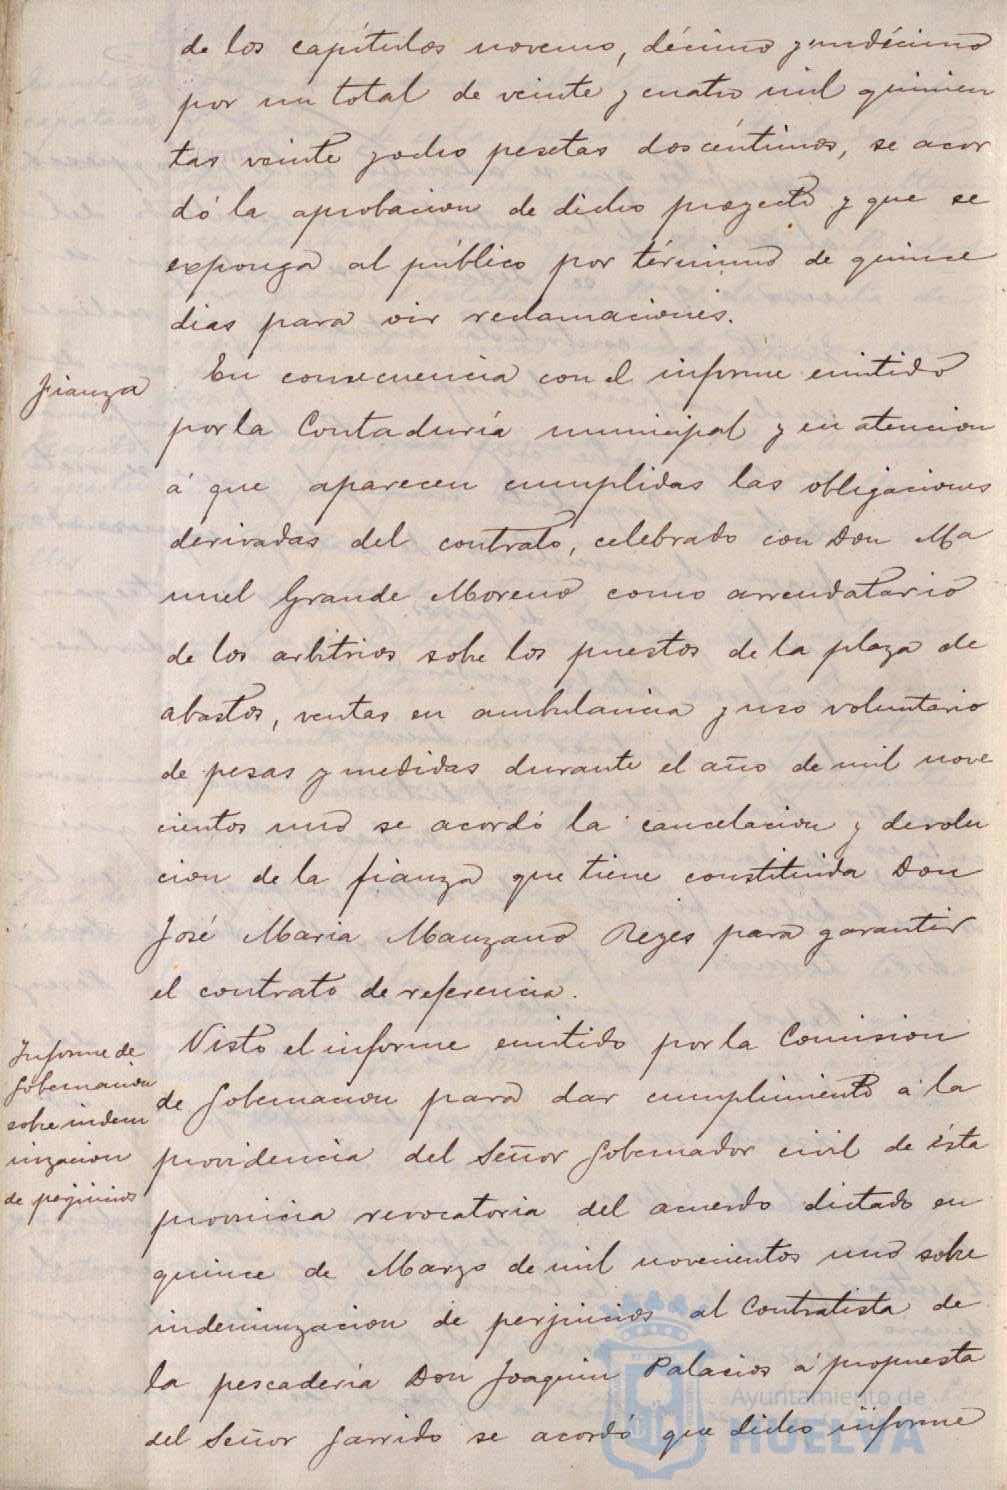 de los capítulos noveno, décimo y undécimo
por un total de veinte y cuatro mil quinien
tas veinte y ocho pesetas dos céntimos, se acor
dó la aprobacion de dicho proyecto y que se
exponga al público por término de quince
dias para oir reclamaciones.
Fianza
En consecuencia con el informe emitido
por la Contaduría municipal y en atencion
á que aparecen cumplidas las obligaciones
derivadas del contrato, celebrado con Don Ma
nuel Grande Moreno como arrendatario
de los arbitrios sobre los puestos de la plaza de
abastos, ventas en ambulancia y uso voluntario
de pesas y medidas durante el año de mil nove
cientos uno se acordó la cancelacion y devolu
cion de la fianza que tiene constituida Don
José Maria Manzano Reyes para garantir
el contrato de referencia.
Informe de
Gobernacion
sobre indem
nizacion
de perjuicios
Visto el informe emitido por la Comision
de Gobernacion para dar cumplimiento á la
providencia del Señor Gobernador civil de ésta
provincia revocatoria del acuerdo dictado en
quince de Marzo de mil novecientos uno sobre
indemnizacion de perjuicios al Contratista de
la pescadería Don Joaquin Palacios á propuesta
del Señor Garrido se acordó que dicho informe
Ayuntamiento de
HUELVA